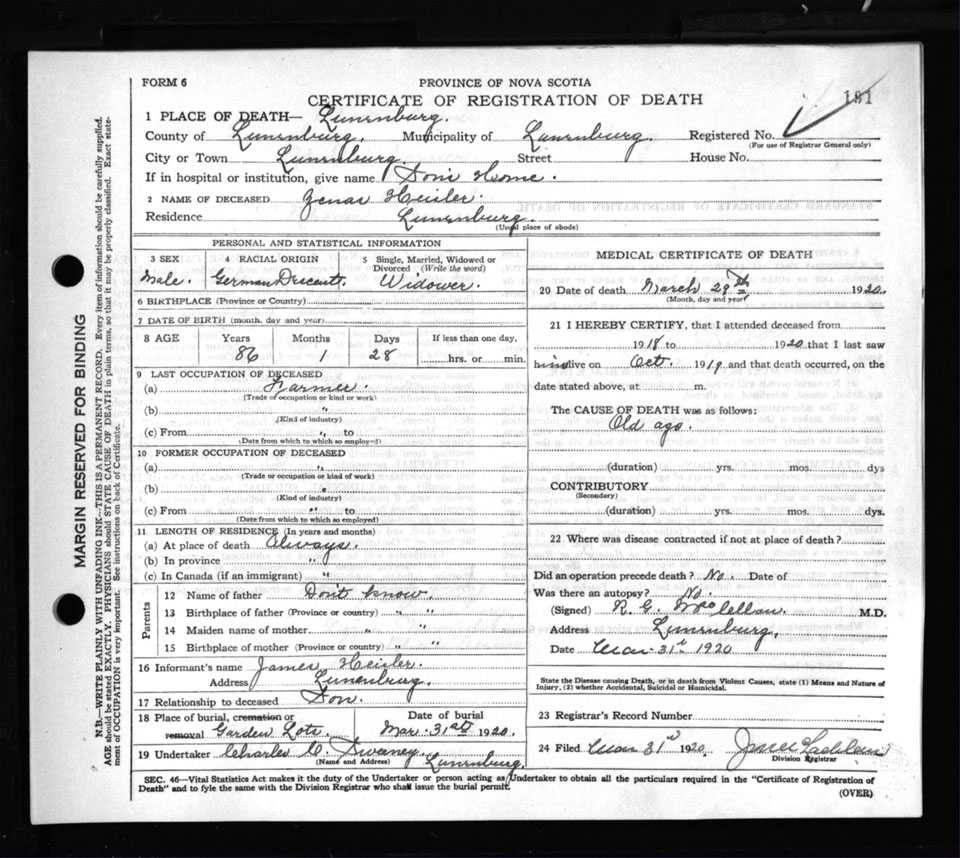 FORM 6
PROVINCE OF NOVA SCOTIA
CERTIFICATE OF REGISTRATION OF DEATH
191
1 PLACE OF DEATH— Lunenburg.
County of Lunenburg. Municipality of Lunenburg. Registered No.
(For use of Registrar General only)
City or Town Lunenburg. Street House No.
If in hospital or institution, give name Son's Home.
2 NAME OF DECEASED Zenas Heisler.
Residence Lunenburg.
(Usual place of abode)
PERSONAL AND STATISTICAL INFORMATION
3 SEX 4 RACIAL ORIGIN 5 Single, Married, Widowed or Divorced (Write the word)
Male. German Descent. Widower.
6 BIRTHPLACE (Province or Country)
7 DATE OF BIRTH (month, day and year)
8 AGE Years Months Days If less than one day,
86 1 28 hrs. or min.
9 LAST OCCUPATION OF DECEASED
(a) Farmer.
(Trade of occupation or kind or work)
(b) "
(Kind of industry)
(c) From " to
(Date from which to which so employed)
10 FORMER OCCUPATION OF DECEASED
(a) "
(Trade or occupation or kind of work)
(b) "
(Kind of industry)
(c) From " to
(Date from which to which so employed)
11 LENGTH OF RESIDENCE (In years and months)
(a) At place of death Always.
(b) In province "
(c) In Canada (if an immigrant) "
Parents
12 Name of father Don't know.
13 Birthplace of father (Province or country) " "
14 Maiden name of mother " "
15 Birthplace of mother (Province or country) " "
16 Informant's name James Heisler.
Address Lunenburg.
17 Relationship to deceased Son.
18 Place of burial, cremation or removal Garden Lots.
Date of burial Mar. 31st 1920.
19 Undertaker Charles Swaney
(Name and Address) Lunenburg.
MEDICAL CERTIFICATE OF DEATH
20 Date of death March 29th 1920.
(Month, day and year)
21 I HEREBY CERTIFY, that I attended deceased from
1918 to 1920 that I last saw
him alive on Oct. 1919 and that death occurred, on the
date stated above, at m.
The CAUSE OF DEATH was as follows:
Old age.
(duration) yrs. mos. dys
CONTRIBUTORY
(Secondary)
(duration) yrs. mos. dys.
22 Where was disease contracted if not at place of death?
Did an operation precede death? No. Date of
Was there an autopsy? No.
(Signed) R. G. McClellan. M.D.
Address Lunenburg.
Date Mar 31st 1920
State the Disease causing Death, or in death from Violent Causes, state (1) Means and Nature of
Injury, (2) whether Accidental, Suicidal or Homicidal.
23 Registrar's Record Number
24 Filed Mar 31st 1920.
Division Registrar
SEC. 46—Vital Statistics Act makes it the duty of the Undertaker or person acting as Undertaker to obtain all the particulars required in the "Certificate of Registration of
Death" and to fyle the same with the Division Registrar who shall issue the burial permit.
(OVER)
MARGIN RESERVED FOR BINDING
N.B.—WRITE PLAINLY WITH UNFADING INK—THIS IS A PERMANENT RECORD. Every item of information should be carefully supplied.
AGE should be stated EXACTLY. PHYSICIANS should STATE CAUSE OF DEATH in plain terms, so that it may be properly classified. Exact statement of OCCUPATION is very important. See instructions on back of Certificate.